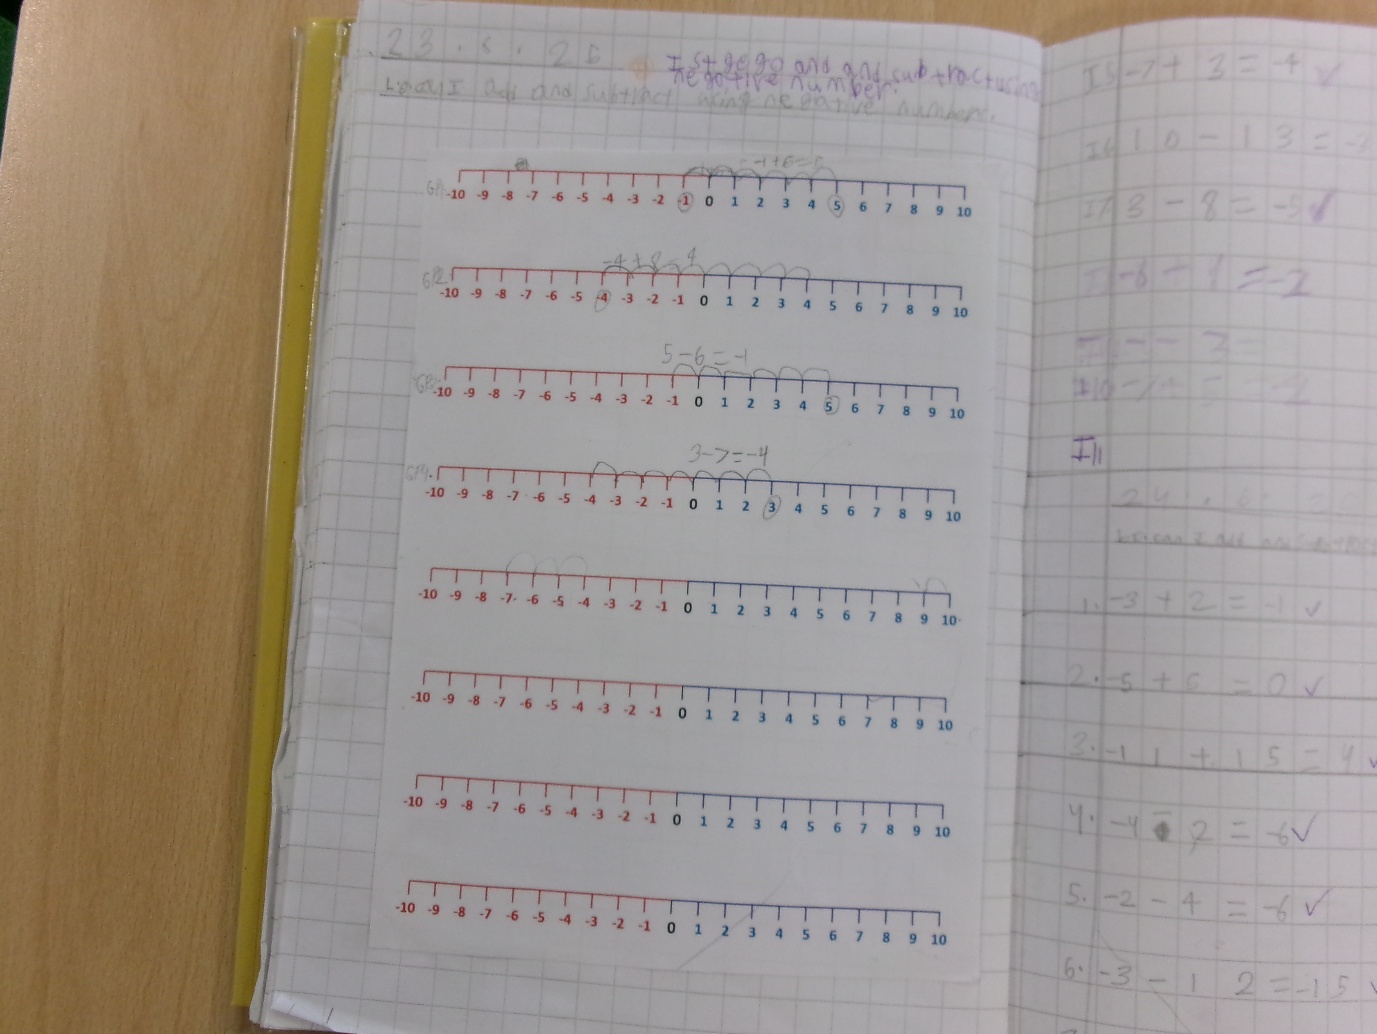 23.6.25
I Strategy and and subtract using
negative number.
LI: can I add and subtract using negative numbers.
GP1.
-1+6=5
-10 -9 -8 -7 -6 -5 -4 -3 -2 -1 0 1 2 3 4 5 6 7 8 9 10
GP2.
-4+8=4
-10 -9 -8 -7 -6 -5 -4 -3 -2 -1 0 1 2 3 4 5 6 7 8 9 10
GP3.
5-6=-1
-10 -9 -8 -7 -6 -5 -4 -3 -2 -1 0 1 2 3 4 5 6 7 8 9 10
GP4.
3-7=-4
-10 -9 -8 -7 -6 -5 -4 -3 -2 -1 0 1 2 3 4 5 6 7 8 9 10
-10 -9 -8 -7 -6 -5 -4 -3 -2 -1 0 1 2 3 4 5 6 7 8 9 10
-10 -9 -8 -7 -6 -5 -4 -3 -2 -1 0 1 2 3 4 5 6 7 8 9 10
-10 -9 -8 -7 -6 -5 -4 -3 -2 -1 0 1 2 3 4 5 6 7 8 9 10
-10 -9 -8 -7 -6 -5 -4 -3 -2 -1 0 1 2 3 4 5 6 7 8 9 10
I5 -7+3=-4
I6 10-13=-3
I7 3-8=-5
-6+4=-2
I10
I11
24.6
LI: can I add and subtract
1. -3+2=-1
2. -5+5=0
3. -11+15=4
4. -4-2=-6
5. -2-4=-6
6. -3-12=-15